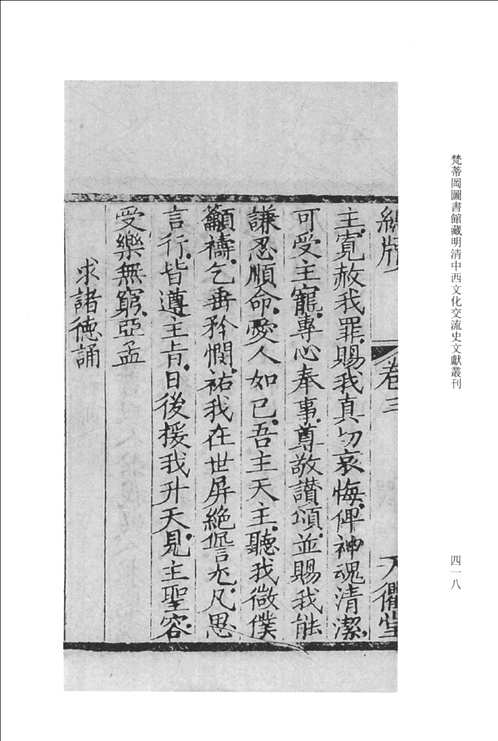 梵蒂岡圖書館藏明清中西文化交流史文獻叢刊
四一八
卷三
主寬赦我罪賜我真切哀悔俾神魂清潔
可受主寵專心奉事尊敬讚頌並賜我能
謙忍順命愛人如己吾主天主聽我微僕
籲禱乞垂矜憫祐我在世屏絕愆尤凡思
言行皆遵主旨日後援我升天見主聖容
受樂無窮亞孟
求諸德誦